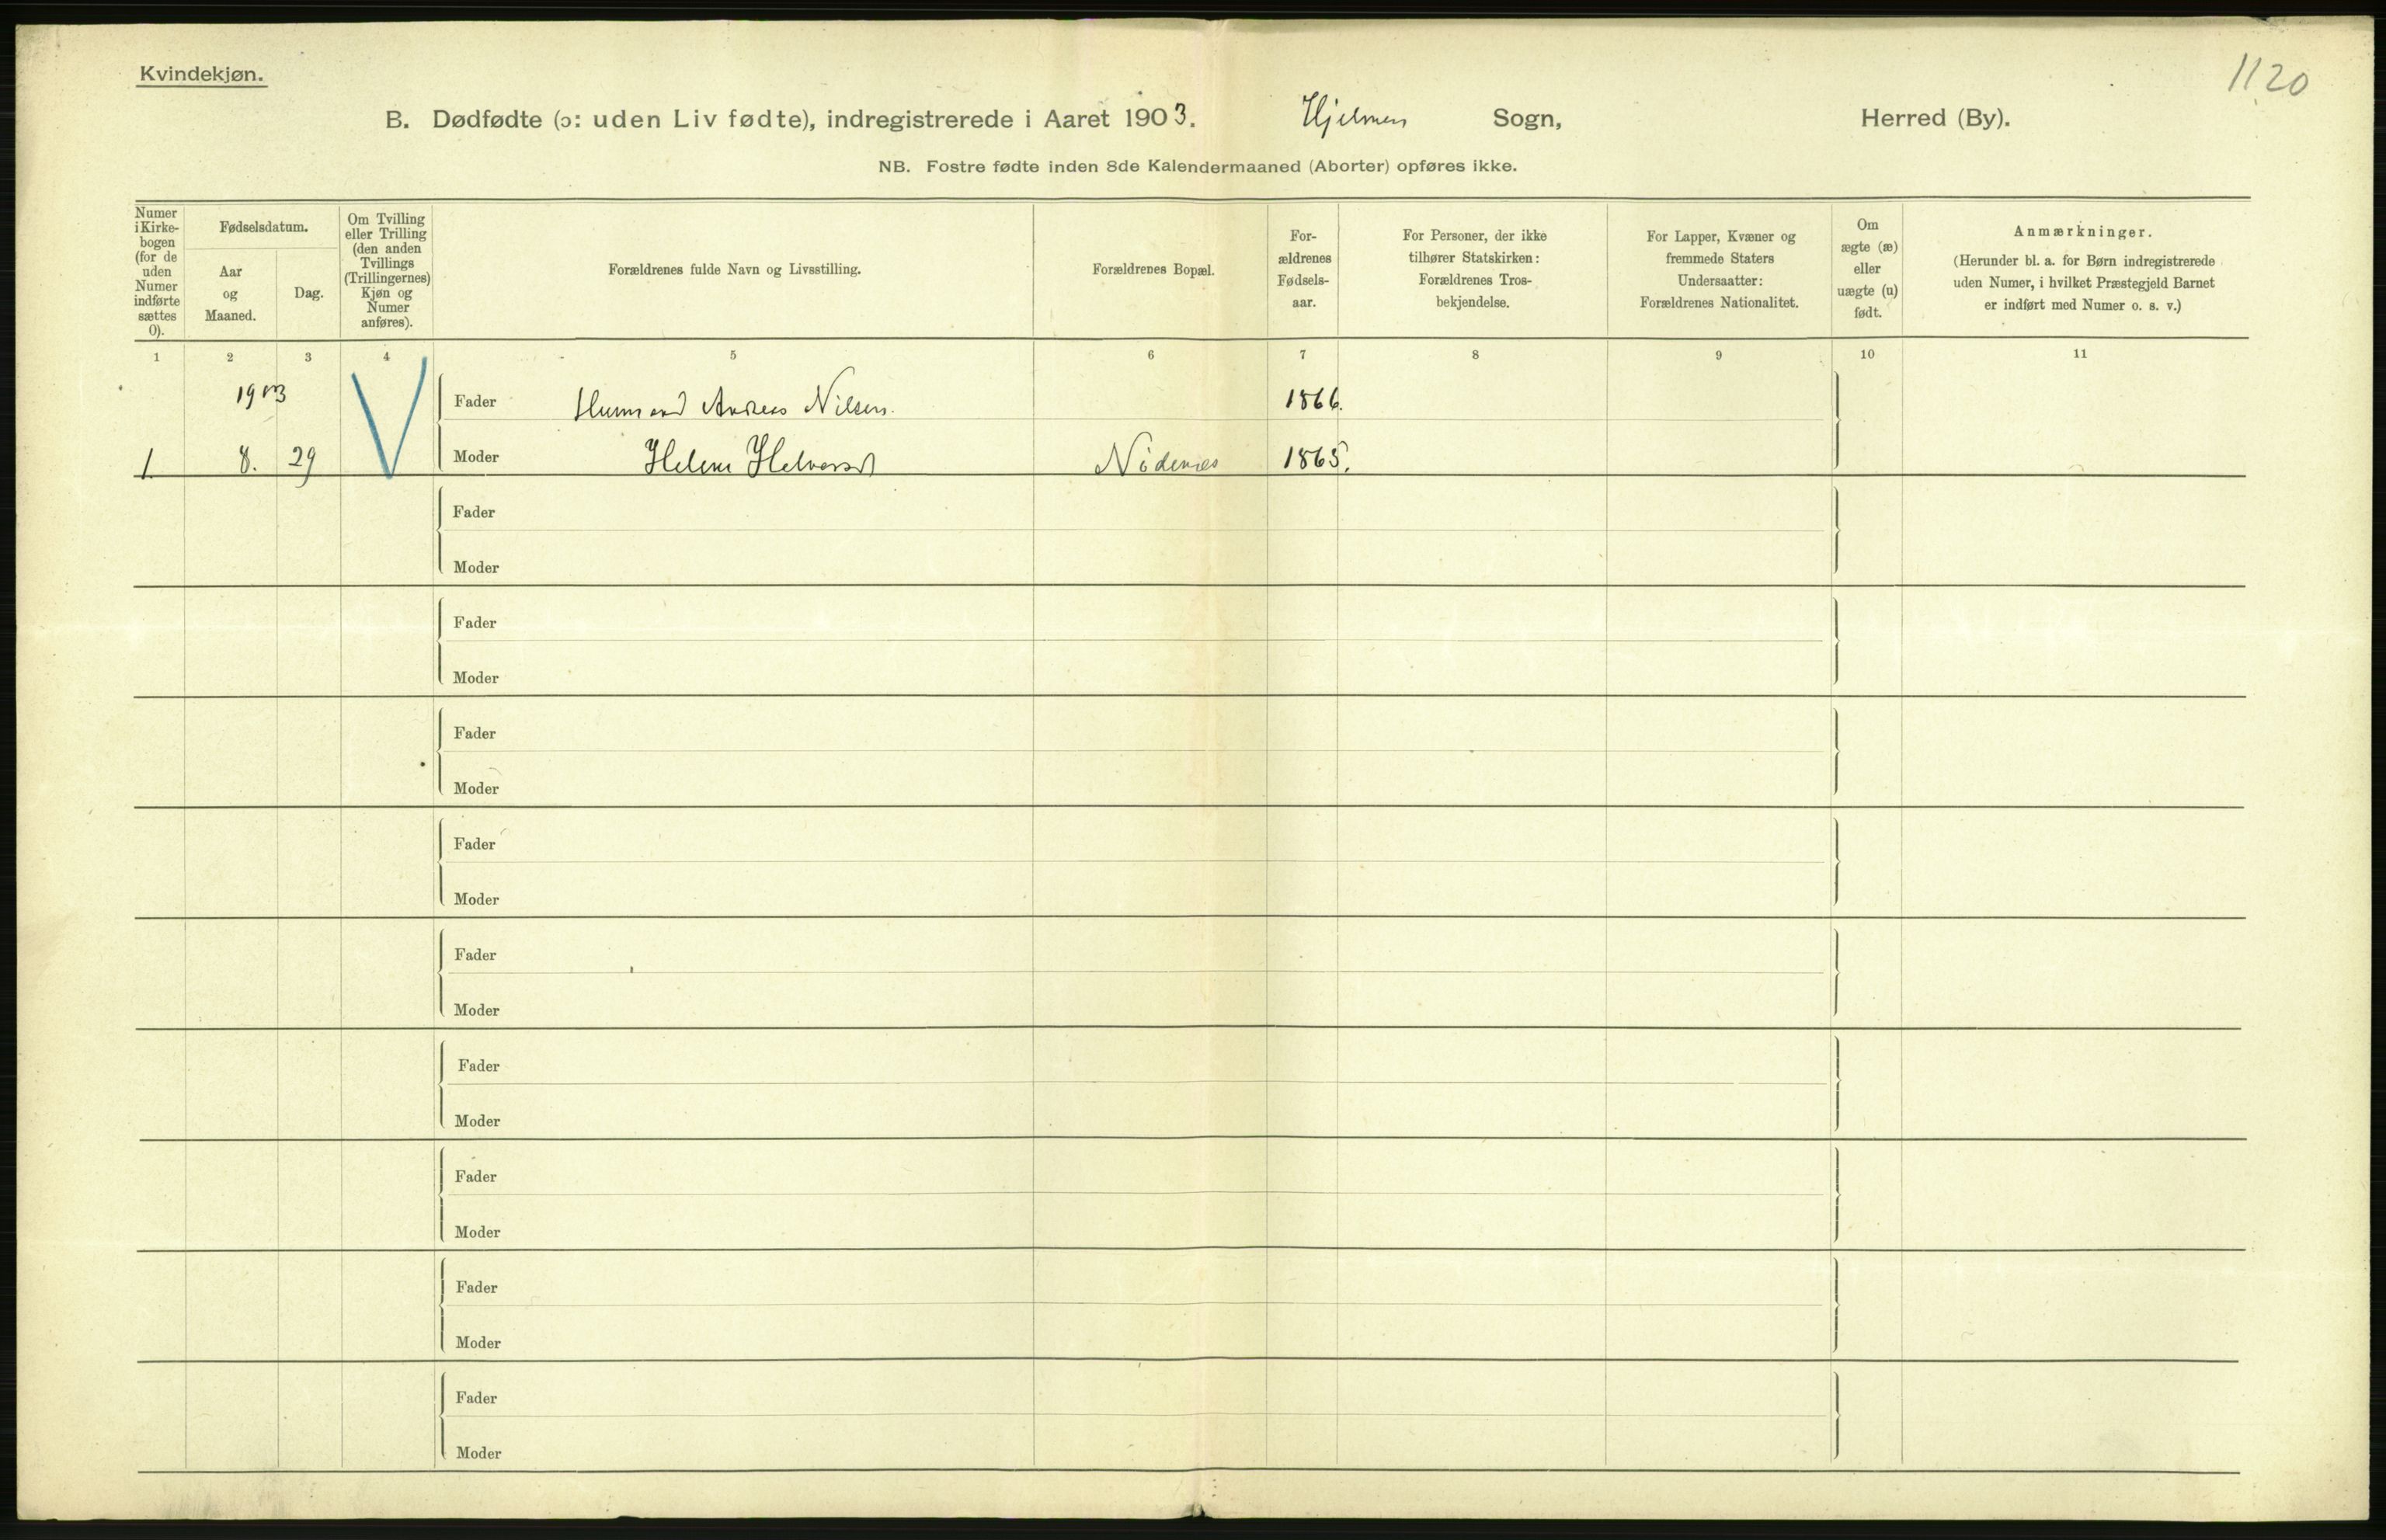 Kvindekjøn.
1120
B. Dødfødte (ɔ: uden Liv fødte), indregistrerede i Aaret 1903. Sogn, Herred (By).
NB. Fostre fødte inden 8de Kalendermaaned (Aborter) opføres ikke.
Numer
i Kirke-
bogen
(for de
uden
Numer
indførte
sættes
0).
Fødselsdatum.
Aar
og
Maaned.
Dag.
Om Tvilling
eller Trilling
(den anden
Tvillings
(Trillingernes)
Kjøn og
Numer
anføres).
Forældrenes fulde Navn og Livsstilling.
Forældrenes Bopæl.
For-
ældrenes
Fødsels-
aar.
For Personer, der ikke
tilhører Statskirken:
Forældrenes Tros-
bekjendelse.
For Lapper, Kvæner og
fremmede Staters
Undersaatter:
Forældrenes Nationalitet.
Om
ægte (æ)
eller
uægte (u)
født.
Anmærkninger.
(Herunder bl. a. for Børn indregistrerede
uden Numer, i hvilket Præstegjeld Barnet
er indført med Numer o. s. v.)
1 2 3 4 5 6 7 8 9 10 11
1903 Fader Andreas Nilsen. 1866.
1 8. 29 Moder Helene 1865.
Fader
Moder
Fader
Moder
Fader
Moder
Fader
Moder
Fader
Moder
Fader
Moder
Fader
Moder
Fader
Moder
Fader
Moder